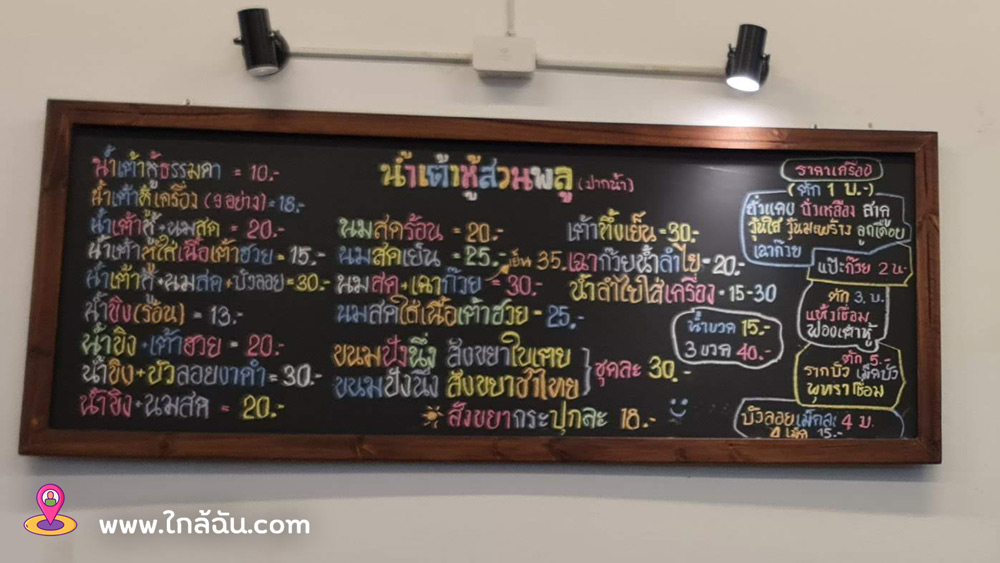 น้ำเต้าหู้สวนพลู (ปากน้ำ)
น้ำเต้าหู้ธรรมดา = 10.-
น้ำเต้าหู้เครื่อง (9 อย่าง) = 18.-
น้ำเต้าหู้+นมสด = 20.-
น้ำเต้าหู้ใส่เนื้อเต้าฮวย = 15.-
น้ำเต้าหู้+นมสด+บัวลอย = 30.-
น้ำขิง(ร้อน) = 13.-
น้ำขิง+เต้าฮวย = 20.-
น้ำขิง+บัวลอยงาดำ = 30.-
น้ำขิง+นมสด = 20.-
นมสดร้อน = 20.-
นมสดเย็น = 25.-
นมสด+เฉาก๊วย = 30.- เย็น 35.
นมสดใส่เนื้อเต้าฮวย = 25.-
ขนมปังนึ่ง สังขยาใบเตย
ขนมปังนึ่ง สังขยาชาไทย
ชุดละ 30.-
สังขยากระปุกละ 18.-
เต้าทึงเย็น = 30.-
เฉาก๊วยน้ำลำไย = 20.-
น้ำลำไยใส่เครื่อง = 15-30
น้ำขวด 15.-
3 ขวด 40.-
ราคาเครื่อง
(ตัก 1 บ.-)
ถั่วแดง ถั่วเหลือง สาคู
วุ้นใส วุ้นมะพร้าว ลูกเดือย
เฉาก๊วย
แปะก๊วย 2 บ.
ตัก 3. บ.
แห้วเชื่อม
ฟองเต้าหู้
ตัก 5.-
รากบัว เม็ดบัว
พุทราเชื่อม
บัวลอยเม็ดละ 4 บ.
4 เม็ด 15.-
www.ใกล้ฉัน.com